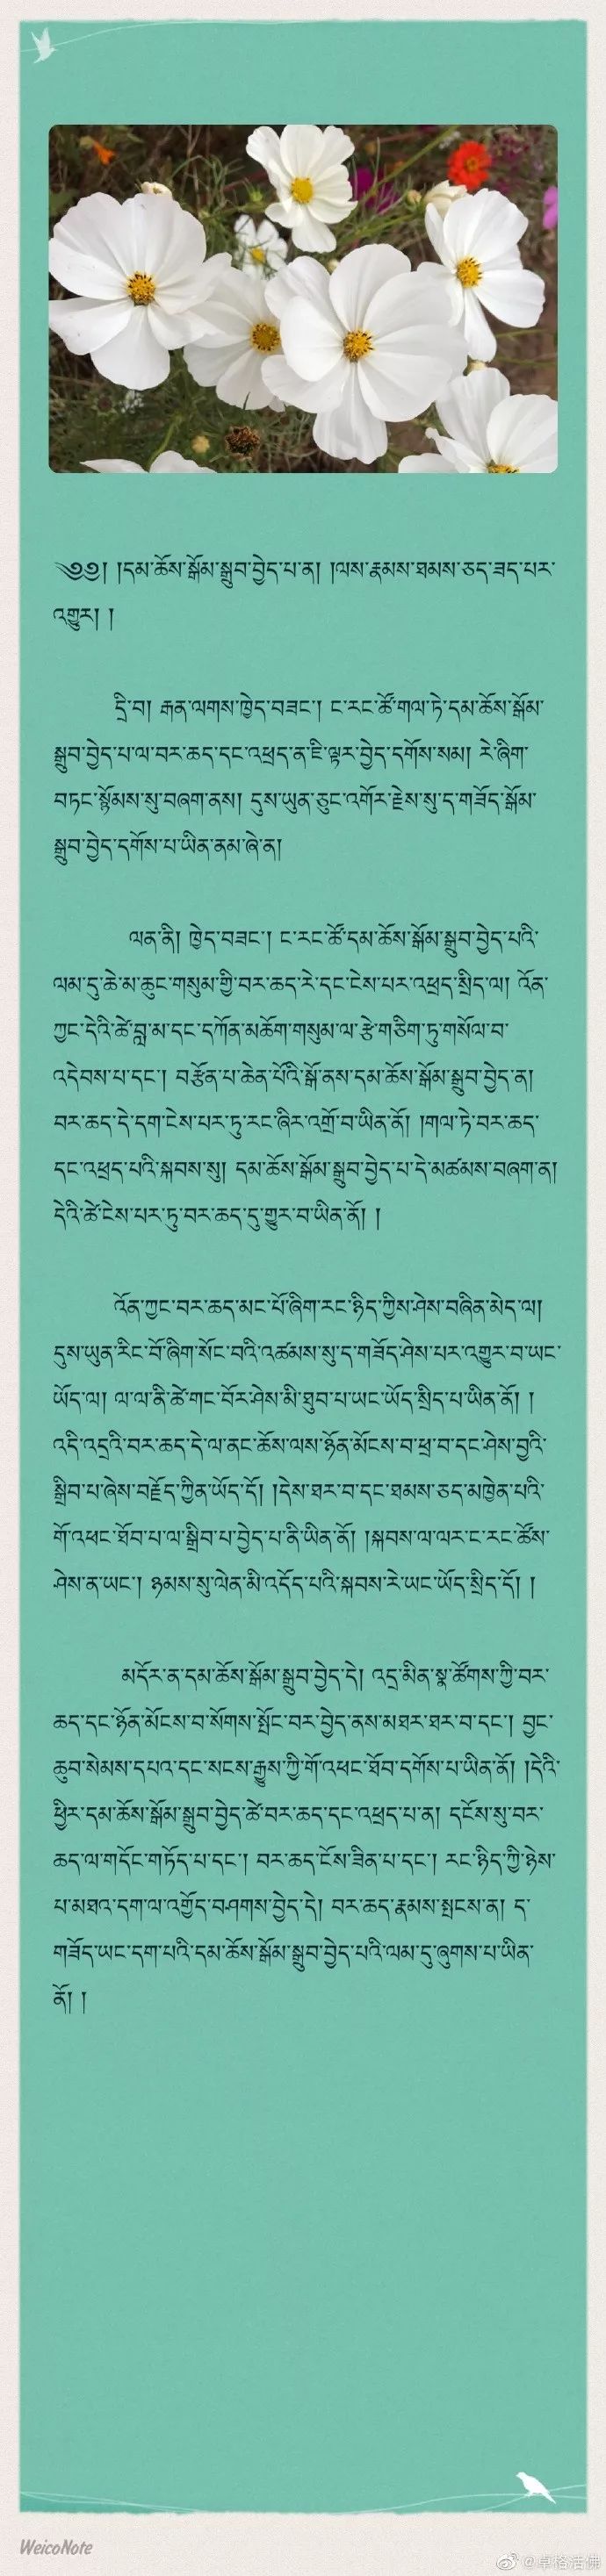 ༄༅། །དམ་ཆོས་སྒོམ་སྒྲུབ་བྱེད་པ་ན། །ལས་རྣམས་ཐམས་ཅད་ཟད་པར་
འགྱུར། །
དྲི་བ། རྒན་ལགས་ཁྱེད་བཟང་། ང་རང་ཚོ་གལ་ཏེ་དམ་ཆོས་སྒོམ་
སྒྲུབ་བྱེད་པ་ལ་བར་ཆད་དང་འཕྲད་ན་ཇི་ལྟར་བྱེད་དགོས་སམ། རེ་ཞིག་
བཏང་སྙོམས་སུ་བཞག་ནས། དུས་ཡུན་ཅུང་འགོར་རྗེས་སུ་ད་གཟོད་སྒོམ་
སྒྲུབ་བྱེད་དགོས་པ་ཡིན་ནམ་ཞེ་ན།
ལན་ནི། ཁྱེད་བཟང་། ང་རང་ཚོ་དམ་ཆོས་སྒོམ་སྒྲུབ་བྱེད་པའི་
ལམ་དུ་ཆེ་མ་ཆུང་གསུམ་གྱི་བར་ཆད་རེ་དང་ངེས་པར་འཕྲད་སྲིད་ལ། འོན་
ཀྱང་དེའི་ཚེ་བླ་མ་དང་དཀོན་མཆོག་གསུམ་ལ་རྩེ་གཅིག་ཏུ་གསོལ་བ་
འདེབས་པ་དང་། བརྩོན་པ་ཆེན་པོའི་སྒོ་ནས་དམ་ཆོས་སྒོམ་སྒྲུབ་བྱེད་ན།
བར་ཆད་དེ་དག་ངེས་པར་ཏུ་རང་ཞིར་འགྲོ་བ་ཡིན་ནོ། །གལ་ཏེ་བར་ཆད་
དང་འཕྲད་པའི་སྐབས་སུ། དམ་ཆོས་སྒོམ་སྒྲུབ་བྱེད་པ་དེ་མཚམས་བཞག་ན།
དེའི་ཚེ་ངེས་པར་ཏུ་བར་ཆད་དུ་གྱུར་བ་ཡིན་ནོ། །
འོན་ཀྱང་བར་ཆད་མང་པོ་ཞིག་རང་ཉིད་ཀྱིས་ཤེས་བཞིན་མེད་ལ།
དུས་ཡུན་རིང་བོ་ཞིག་སོང་བའི་འཚམས་སུ་ད་གཟོད་ཤེས་པར་འགྱུར་བ་ཡང་
ཡོད་ལ། ལ་ལ་ནི་ཚེ་གང་བོར་ཤེས་མི་ཐུབ་པ་ཡང་ཡོད་སྲིད་པ་ཡིན་ནོ། །
འདི་འདྲའི་བར་ཆད་དེ་ལ་ནང་ཆོས་ལས་ཉོན་མོངས་བ་ཕྲ་བ་དང་ཤེས་བྱའི་
སྒྲིབ་པ་ཞེས་བརྗོད་ཀྱིན་ཡོད་དོ། །དེས་ཐར་བ་དང་ཐམས་ཅད་མཁྱེན་པའི་
གོ་འཕང་ཐོབ་པ་ལ་སྒྲིབ་པ་བྱེད་པ་ནི་ཡིན་ནོ། །སྐབས་ལ་ལར་ང་རང་ཚོས་
ཤེས་ན་ཡང་། ཉམས་སུ་ལེན་མི་འདོད་པའི་སྐབས་རེ་ཡང་ཡོད་སྲིད་དོ། །
མདོར་ན་དམ་ཆོས་སྒོམ་སྒྲུབ་བྱེད་དེ། འདྲ་མིན་སྣ་ཚོགས་ཀྱི་བར་
ཆད་དང་ཉོན་མོངས་བ་སོགས་སྤོང་བར་བྱེད་ནས་མཐར་ཐར་བ་དང་། བྱང་
ཆུབ་སེམས་དཔའ་དང་སངས་རྒྱས་ཀྱི་གོ་འཕང་ཐོབ་དགོས་པ་ཡིན་ནོ། །དེའི་
ཕྱིར་དམ་ཆོས་སྒོམ་སྒྲུབ་བྱེད་ཚེ་བར་ཆད་དང་འཕྲད་པ་ན། དངོས་སུ་བར་
ཆད་ལ་གདོང་གཏོད་པ་དང་། བར་ཆད་ངོས་ཟིན་པ་དང་། རང་ཉིད་ཀྱི་ཉེས་
པ་མཐའ་དག་ལ་འགྱོད་བཤགས་བྱེད་དེ། བར་ཆད་རྣམས་སྤངས་ན། ད་
གཟོད་ཡང་དག་པའི་དམ་ཆོས་སྒོམ་སྒྲུབ་བྱེད་པའི་ལམ་དུ་ཞུགས་པ་ཡིན་
ནོ། །
WeicoNote
@卓格活佛